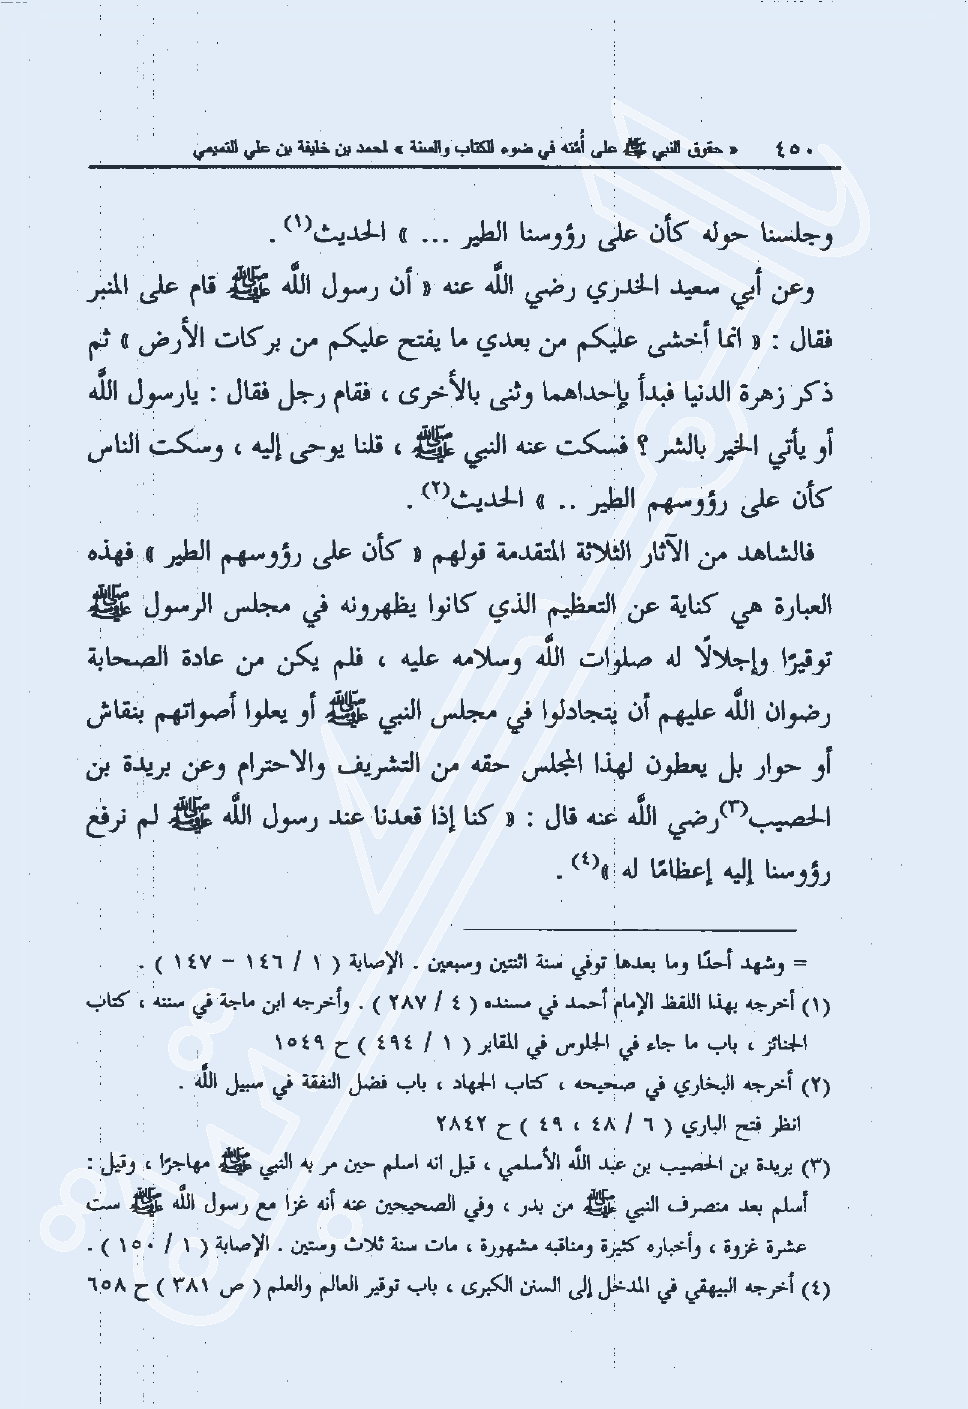 ٤٥٠ « حقوق النبي ﷺ على أُمته في ضوء الكتاب والسنة » لمحمد بن خليفة بن علي التميمي
وجلسنا حوله كأن على رؤوسنا الطير ... » الحديث(١) .
وعن أبي سعيد الخدري رضي اللَّه عنه « أن رسول اللَّه ﷺ قام على المنبر
فقال : « انما أخشى عليكم من بعدي ما يفتح عليكم من بركات الأرض » ثم
ذكر زهرة الدنيا فبدأ بإحداهما وثنى بالأخرى ، فقام رجل فقال : يارسول اللَّه
أو يأتي الخير بالشر ؟ فسكت عنه النبي ﷺ ، قلنا يوحى إليه ، وسكت الناس
كأن على رؤوسهم الطير .. » الحديث(٢) .
فالشاهد من الآثار الثلاثة المتقدمة قولهم « كأن على رؤوسهم الطير » فهذه
العبارة هي كناية عن التعظيم الذي كانوا يظهرونه في مجلس الرسول ﷺ
توقيرًا وإجلالًا له صلوات اللَّه وسلامه عليه ، فلم يكن من عادة الصحابة
رضوان اللَّه عليهم أن يتجادلوا في مجلس النبي ﷺ أو يعلوا أصواتهم بنقاش
أو حوار بل يعطون لهذا المجلس حقه من التشريف والاحترام وعن بريدة بن
الحصيب(٣) رضي اللَّه عنه قال : « كنا إذا قعدنا عند رسول اللَّه ﷺ لم نرفع
رؤوسنا إليه إعظامًا له »(٤) .
= وشهد أحدًا وما بعدها توفي سنة اثنتين وسبعين . الإصابة ( ١ / ١٤٦ – ١٤٧ ) .
(١) أخرجه بهذا اللفظ الإمام أحمد في مسنده ( ٤ / ٢٨٧ ) . وأخرجه ابن ماجة في سننه ، كتاب
الجنائز ، باب ما جاء في الجلوس في المقابر ( ١ / ٤٩٤ ) ح ١٥٤٩
(٢) أخرجه البخاري في صحيحه ، كتاب الجهاد ، باب فضل النفقة في سبيل اللَّه .
انظر فتح الباري ( ٦ / ٤٨ ، ٤٩ ) ح ٢٨٤٢
(٣) بريدة بن الحصيب بن عبد اللَّه الأسلمي ، قيل انه اسلم حين مر به النبي ﷺ مهاجرًا ، وقيل :
أسلم بعد منصرف النبي ﷺ من بدر ، وفي الصحيحين عنه أنه غزا مع رسول اللَّه ﷺ ست
عشرة غزوة ، وأخباره كثيرة ومناقبه مشهورة ، مات سنة ثلاث وستين . الإصابة ( ١ / ١٥٠ ) .
(٤) أخرجه البيهقي في المدخل إلى السنن الكبرى ، باب توقير العالم والعلم ( ص ٣٨١ ) ح ٦٥٨